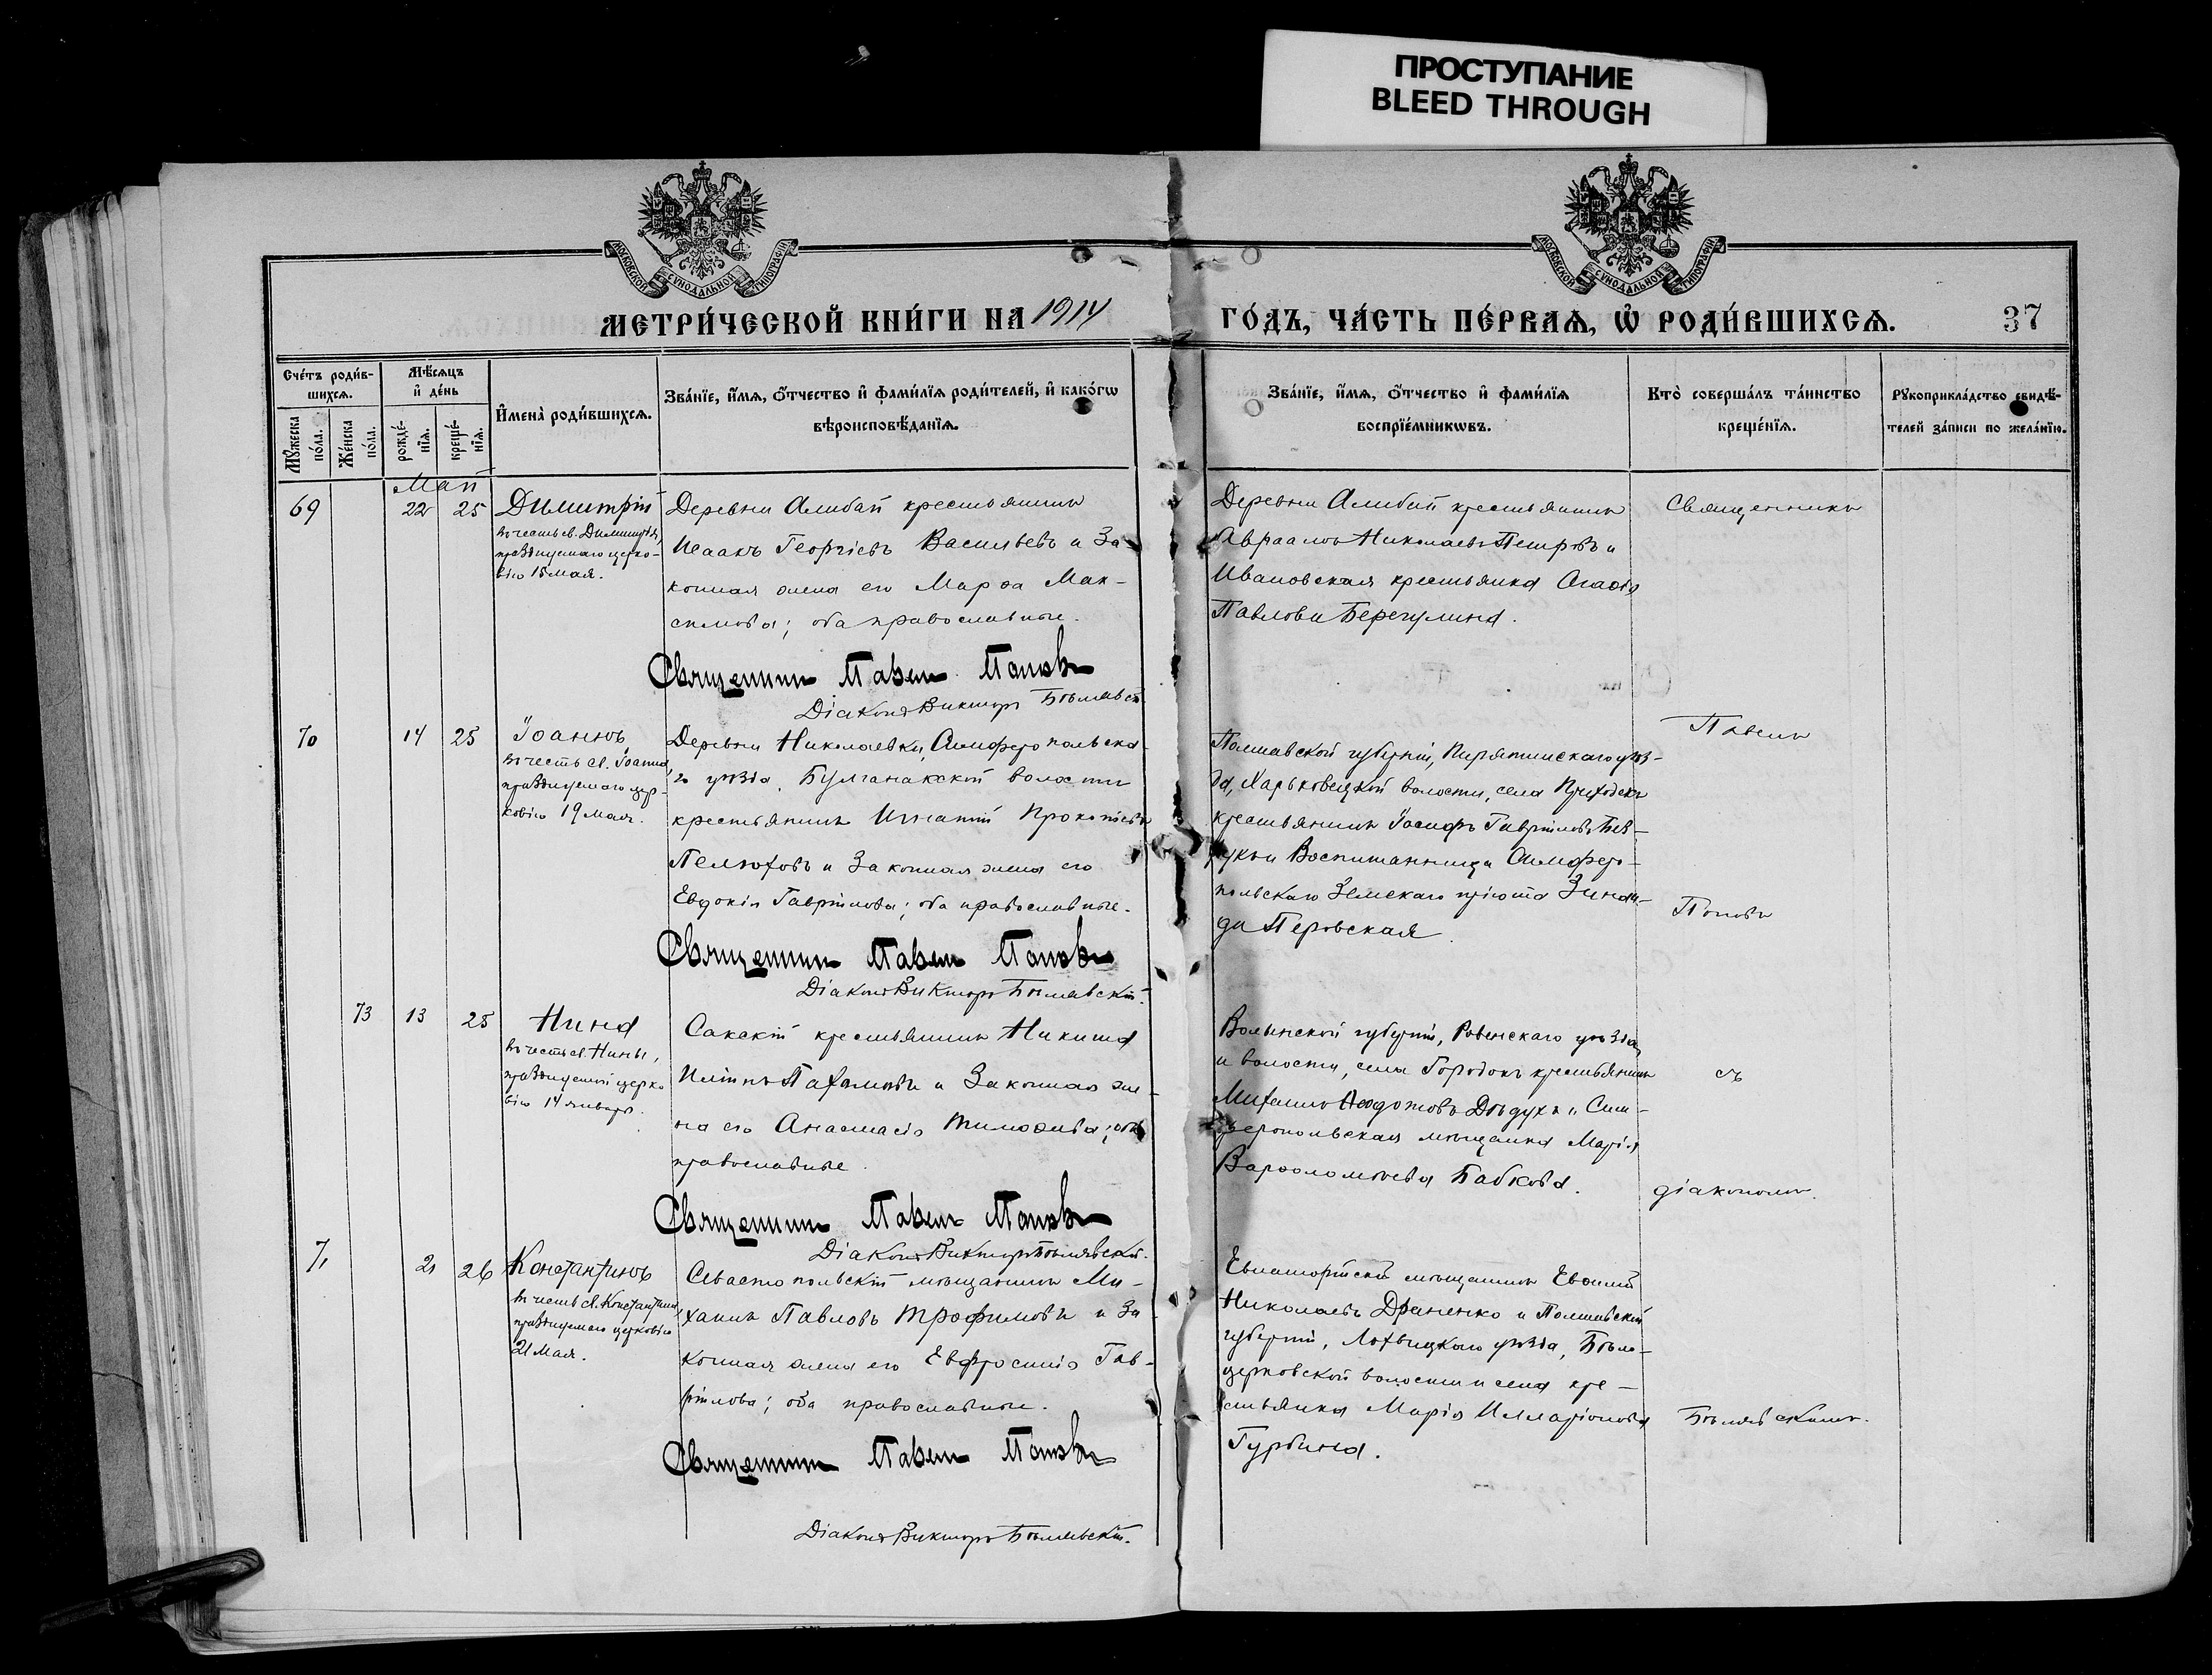 ПРОСТУПАНИЕ
BLEED THROUGH
МОСКОВСКОЙ СѴНОДАЛЬНОЙ ТИПОГРАФІИ
МОСКОВСКОЙ СѴНОДАЛЬНОЙ ТИПОГРАФІИ
МЕТРИ́ЧЕСКОЙ КНИ́ГИ НА 1914
ГО́ДЪ, ЧА́СТЬ ПЕ́РВАѦ, Ѡ҆ РОДИ́ВШИХСѦ.
37
Сче́тъ роди́в-
шихсѧ.
Мꙋ́жеска
по́ла.
Же́нска
по́ла.
Мѣ́сѧцъ
и҆ де́нь
рожде́-
нїѧ.
креще́-
нїѧ.
И҆мена̀ роди́вшихсѧ.
Зва́нїе, и҆́мѧ, ѻ҆́тчество и҆ фами́лїѧ роди́телей, и҆ како́гѡ
вѣроисповѣ́данїѧ.
Зва́нїе, и҆́мѧ, ѻ҆́тчество и҆ фами́лїѧ
воспрїе́мникѡвъ.
Кто̀ соверша́лъ та́инство
креще́нїѧ.
Рꙋкоприкла́дство свидѣ́-
телей за́писи по жела́нїю.
Май
69 22 25 Димитрій
въ честь св. Димитрія,
празднуемаго церко-
вію 15 мая.
Деревни Алибай крестьянинъ
Исаакъ Георгіевъ Васильевъ и за-
конная жена его Марѳа Мак-
симова; оба православные.
Священникъ Павелъ Поповъ
Діаконъ Викторъ Бѣлявскій.
Деревни Алибай крестьянинъ
Авраамъ Николаевъ Петровъ и
Ивановская крестьянка Агаѳія
Павлова Берегулина.
Священникъ
70 14 25 Іоаннъ
въ честь св. Іоанна,
празднуемаго цер-
ковію 19 мая.
Деревни Николаевки, Симферопольска-
го уѣзда, Булганакской волости
крестьянинъ Игнатій Прокопіевъ
Пелюховъ и законная жена его
Евдокія Гавріилова; оба православные.
Священникъ Павелъ Поповъ
Діаконъ Викторъ Бѣлявскій.
Полтавской губерніи, Пирятинскаго уѣз-
да, Харьковецкой волости, села Приходекъ
крестьянинъ Іосифъ Гавріиловъ
и Воспитанница Симферо-
польскаго Земскаго пріюта Зинаи-
да Перовская.
Павелъ
Поповъ
73 13 25 Нина
въ честь св. Нины,
празднуемой церко-
вію 14 января.
Сакскій крестьянинъ Никита
Иліинъ Пахомовъ и законная же-
на его Анастасія Тимоѳеева; оба
православные.
Священникъ Павелъ Поповъ
Діаконъ Викторъ Бѣлявскій.
Волынской губерніи, Ровенскаго уѣзда
и волости, села Городокъ крестьянинъ
Михаилъ Ѳеодотовъ Дѣдухъ и Сим-
феропольская мѣщанка Марія
Варѳоломѣева Бабкова.
съ
діакономъ
71 21 26 Константинъ
въ честь св. Константина,
празднуемаго церковію
21 Мая.
Севастопольскій мѣщанинъ Ми-
хаилъ Павловъ Трофимовъ и за-
конная жена его Евфросинія Гав-
ріилова; оба православные.
Священникъ Павелъ Поповъ
Діаконъ Викторъ Бѣлявскій.
Евпаторійскій мѣщанинъ Евѳимій
Николаевъ Драненко и Полтавской
губерніи, Лохвицкаго уѣзда, Бѣло-
церковской волости и села кре-
стьянка Марія Илларіонова
Гурбина.
Бѣлявскимъ.